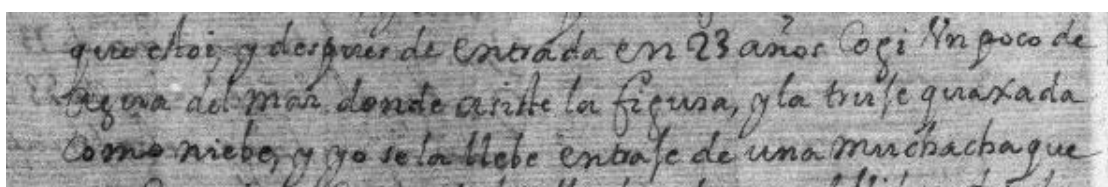 que estoi, y despues de entrada en 23 años Cogi Vn poco de
Agua del mar donde asiste la figura, y la truje quaxada
Como niebe, y yo se la llebe entraje de una muchacha que